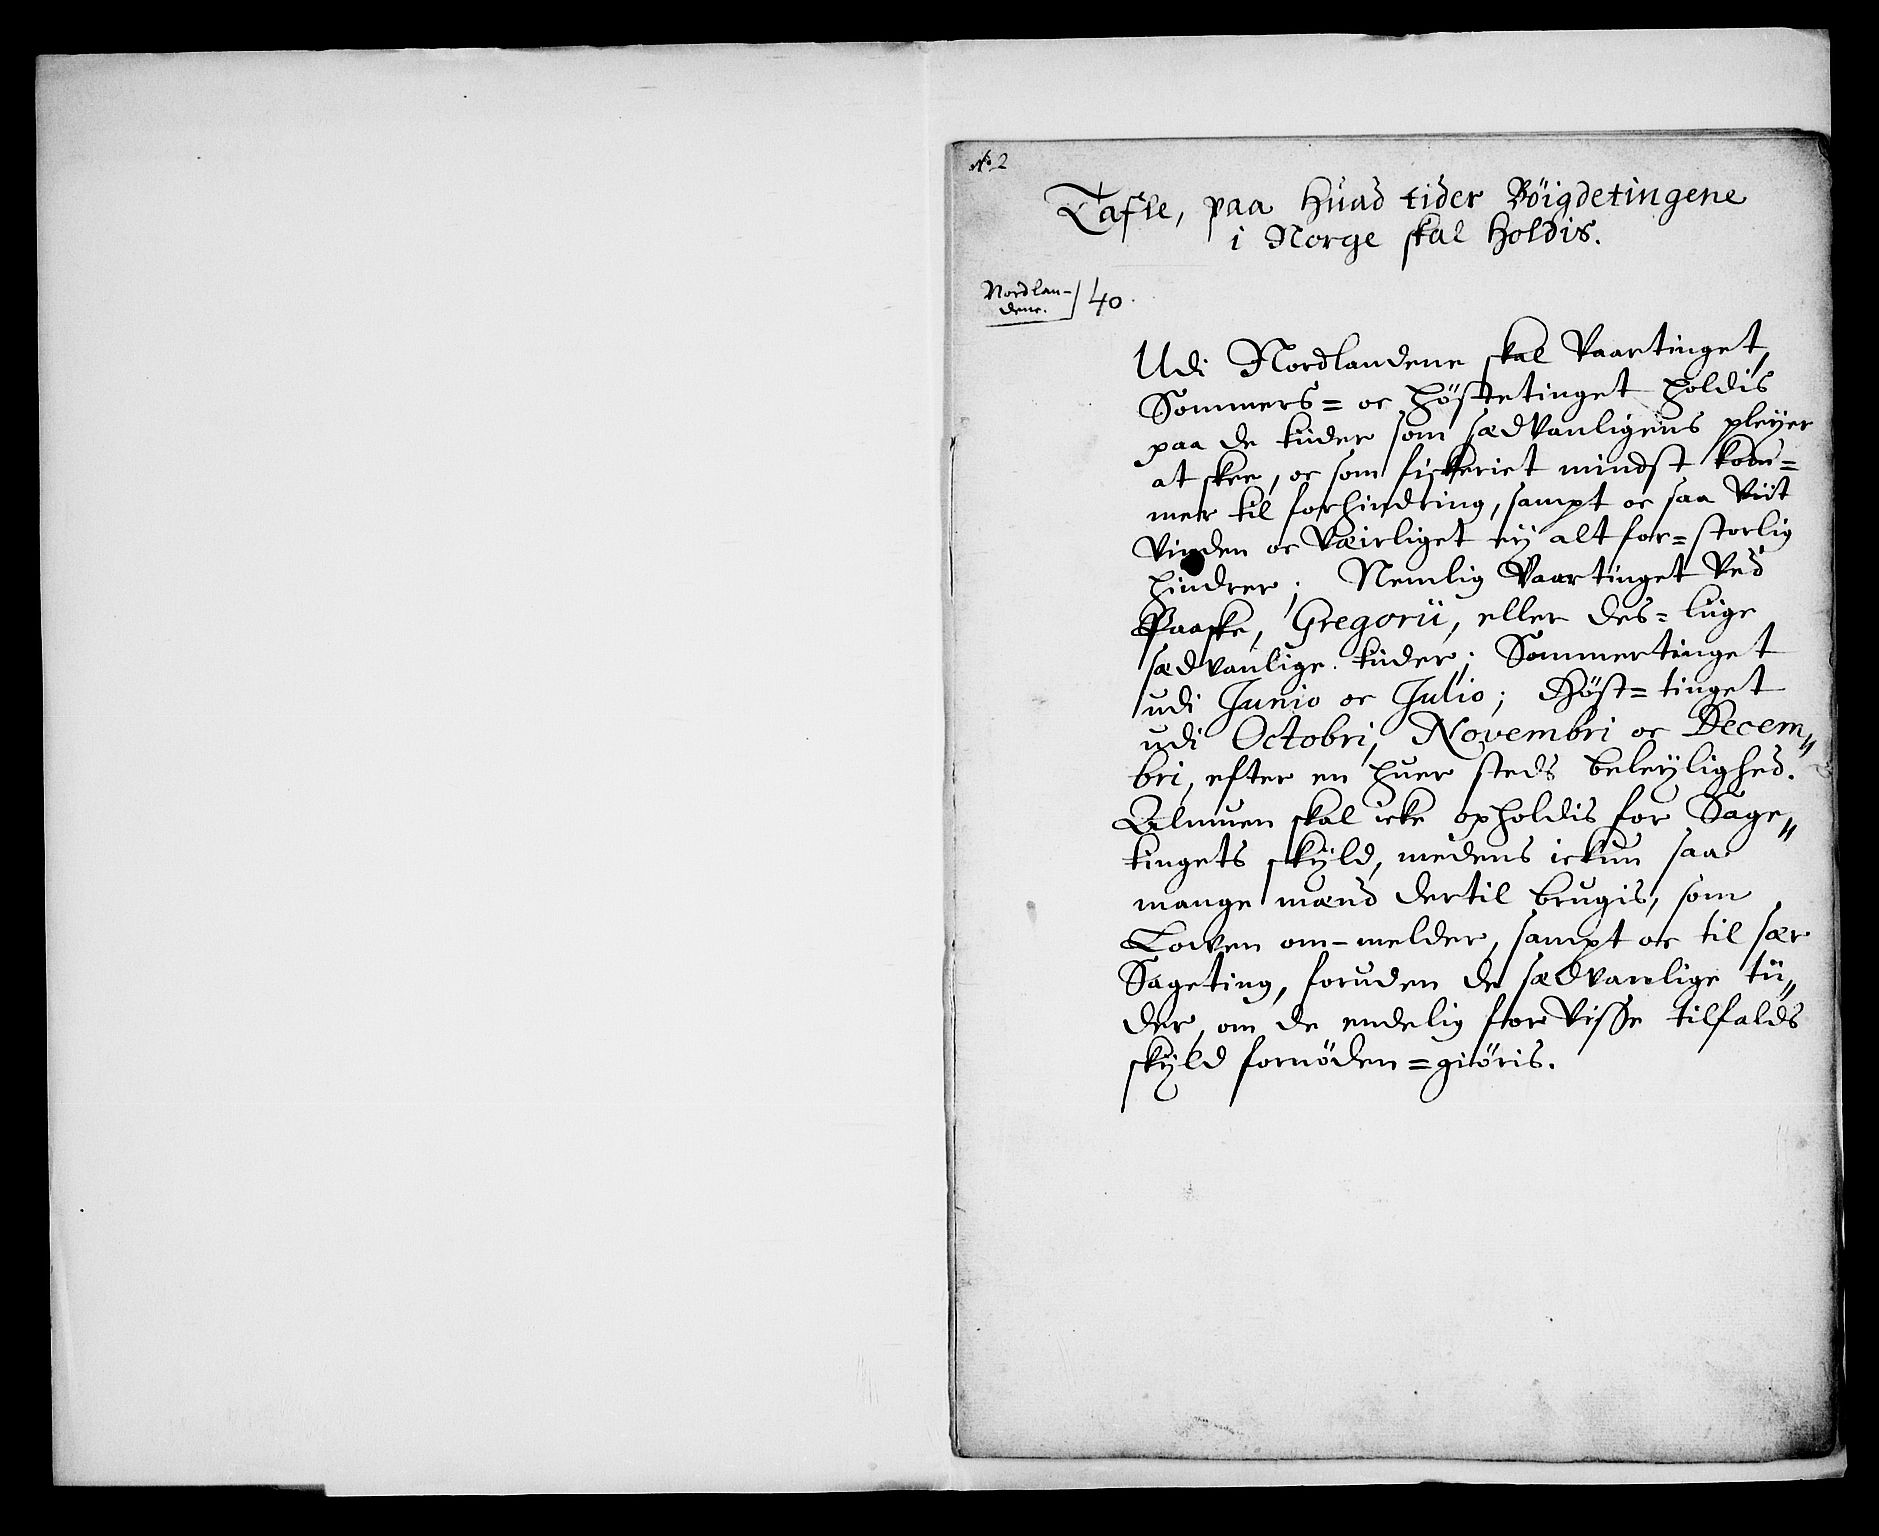 No 2
Tafle, paa huad tider Böigdetingene
i Norge skal holdis.
Nordlan-
dene.
40.
Udi Nordlandene skal Vaartinget,
Sommers= oc Höstetinget holdis
paa de tiider som sædvanligens pleyer
at skee, oc som fiskeriet mindst kom=
mer til forhindring, sampt oc saa viit
vinden oc Væirliget ey alt for= storlig
hindrer; Nemlig Vaartinget ved
Paaske, Gregorii, eller des= liige
sædvanlige tiider; Sommertinget
udi Junio oc Julio; Höst= tinget
udi Octobri, Novembri oc Decem„
bri, efter en huer steds beleylighed.
Almuen skal icke opholdis for Sage„
tingets skyld, medens ickun saa
mange mænd dertil brugis, som
Lowen om-melder, sampt oc til sær
Sageting, foruden de sædvanlige tii„
der, om de endelig for visse tilfalds
skyld fornöden= giöris.